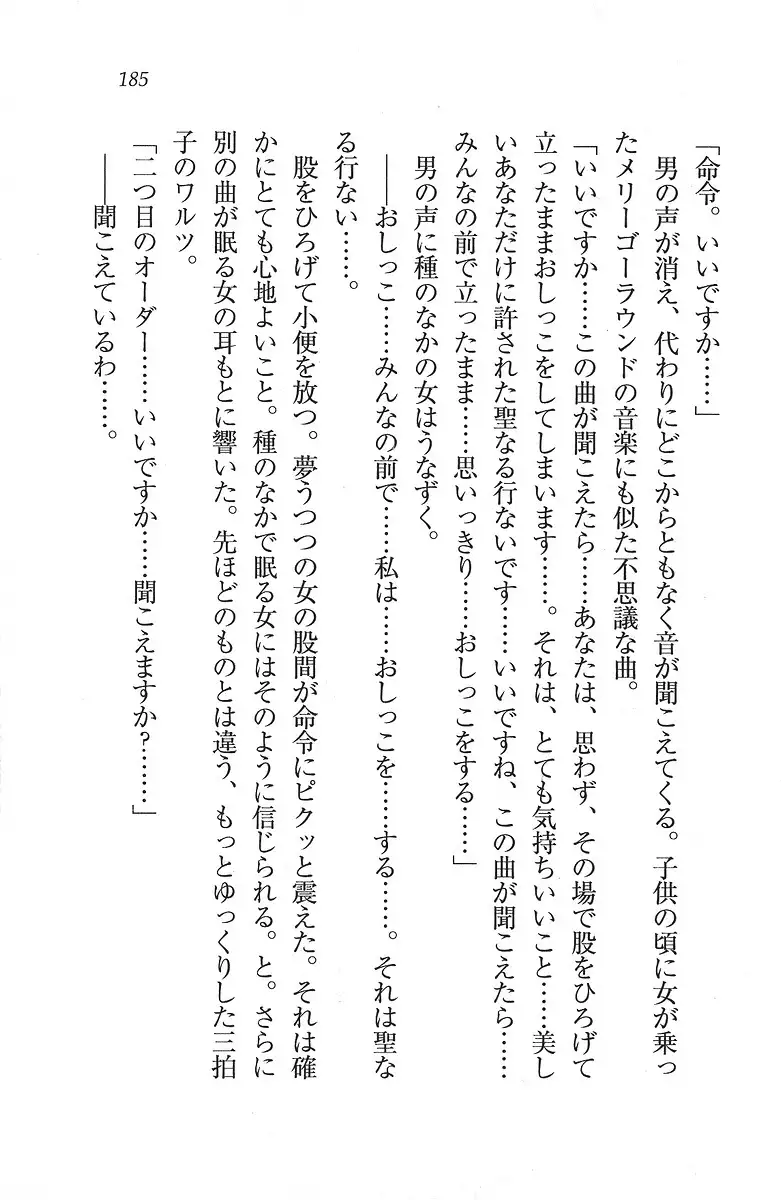 185
「命令。いいですか……」
　男の声が消え、代わりにどこからともなく音が聞こえてくる。子供の頃に女が乗っ
たメリーゴーラウンドの音楽にも似た不思議な曲。
「いいですか……この曲が聞こえたら……あなたは、思わず、その場で股をひろげて
立ったままおしっこをしてしまいます……。それは、とても気持ちいいこと……美し
いあなただけに許された聖なる行ないです……いいですね、この曲が聞こえたら……
みんなの前で立ったまま……思いっきり……おしっこをする……」
　男の声に種のなかの女はうなずく。
　――おしっこ……みんなの前で……私は……おしっこを……する……。それは聖な
る行ない……。
　股をひろげて小便を放つ。夢うつつの女の股間が命令にピクッと震えた。それは確
かにとても心地よいこと。種のなかで眠る女にはそのように信じられる。と。さらに
別の曲が眠る女の耳もとに響いた。先ほどのものとは違う、もっとゆっくりした三拍
子のワルツ。
「二つ目のオーダー……いいですか……聞こえますか？……」
　――聞こえているわ……。